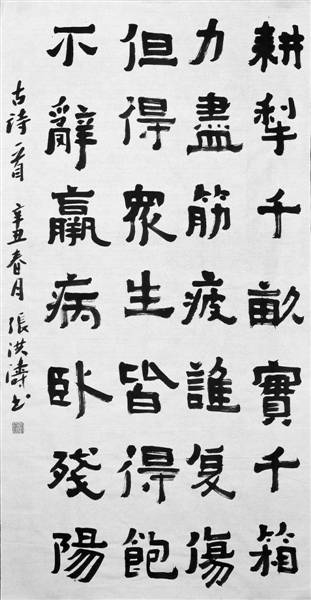 耕犁千畝實千箱
力盡筋疲誰复傷
但得眾生皆得飽
不辭羸病卧殘陽
古詩一首 辛丑春月 張洪濤书